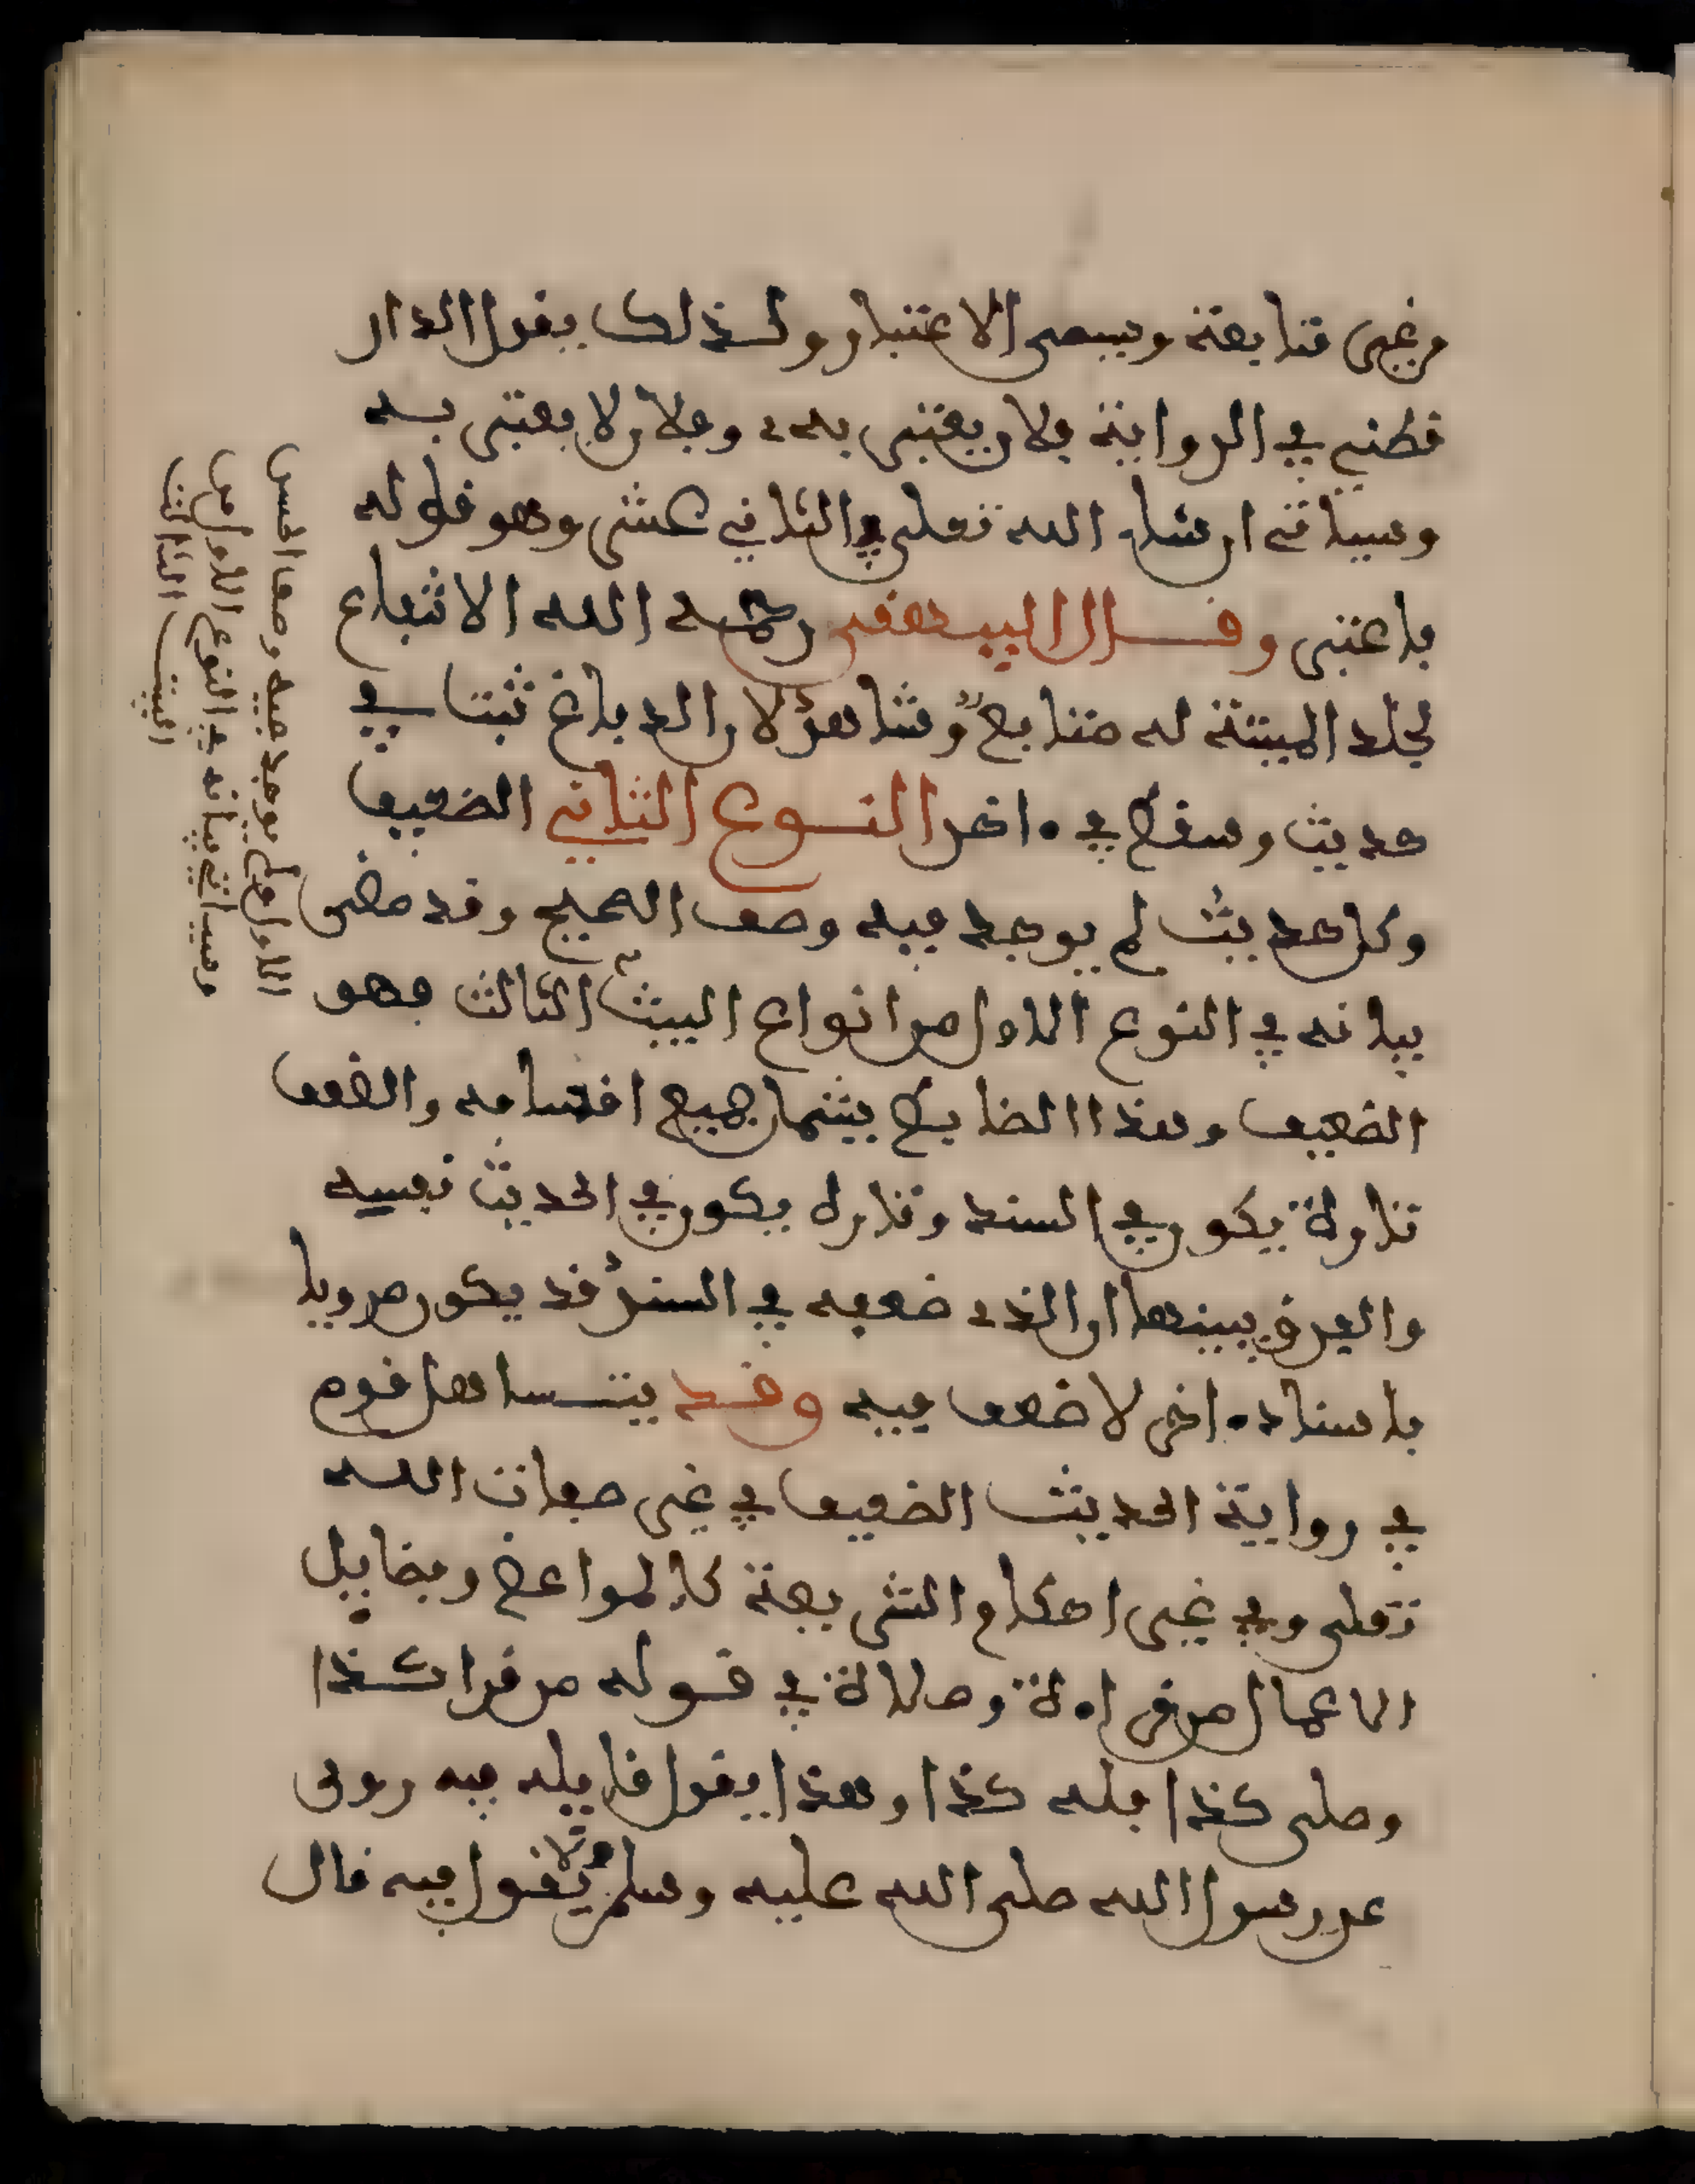 من غير متابعة ويسمى الاعتبار ولذلك يقول الدار
قطني في الرواية فلان يعتبر به وفلان لا يعتبر به
وسياتي ان شاء الله تعلى في الثاني عشر وهو قوله
فاعتبر وقال البيهقي رحمه الله الانتفاع
بجلد الميتة له متابع وشاهد لان الدباغ ثبت في
حديث وسقط في ءاخر النوع الثاني الضعيف
وكل حديث لم يوجد فيه وصف الصحيح وقد مضى
بيانه في النوع الاول من انواع البيت الثالث فهو
الضعيف وهذا الضابط يشمل جميع اقسامه والضعف
تارة يكون في السند وتارة يكون في الحديث نفسه
والفرق بينهما ان الذي ضعفه في السند قد يكون مرويا
باسناد ءاخر لا ضعف فيه وقد يتساهل قوم
في رواية الحديث الضعيف في غير صفات الله
تعلى وفي غير احكام الشريعة كالمواعظ وفضايل
الاعمال من قراءة وصلاة في قوله من قرا كذا
وصلى كذا فله كذا وهذا يقول قايله فيه روي
عن رسول الله صلى الله عليه وسلم ولا يقول فيه قال
وصف الحسن
الاول ولم يوجد فيه
وسياتي بيانه في النوع الاول من
البيت الثالث